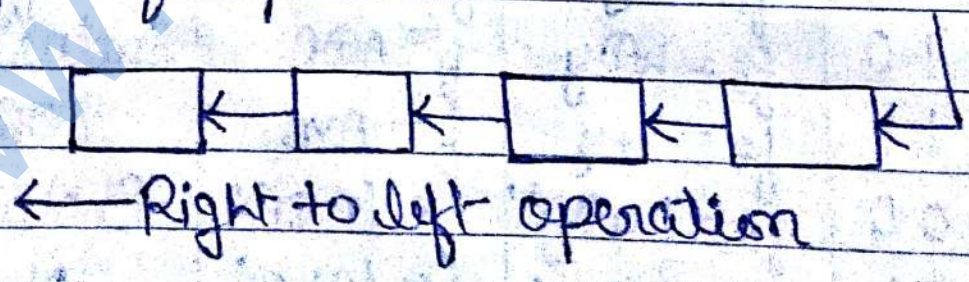 ← Right to left operation